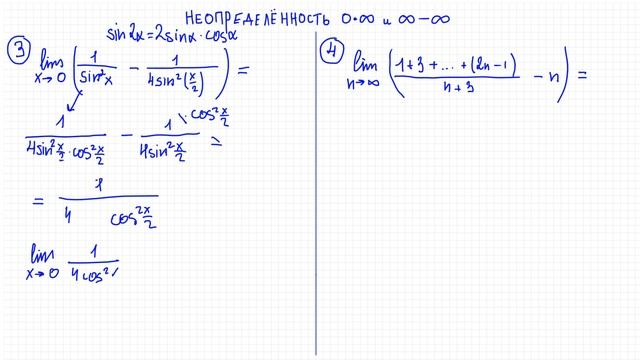 НЕОПРЕДЕЛЁННОСТЬ 0·∞ и ∞−∞
sin2α=2sinα·cosα
③ lim x→0 (1/sin²x − 1/(4sin²(x/2))) =
1/(4sin²x/2·cos²x/2) − 1\·cos²x/2/(4sin²x/2) =
= 1/(4 cos²x/2)
lim x→0 1/(4cos²
④ lim n→∞ ((1+3+...+(2n−1))/(n+3) − n) =